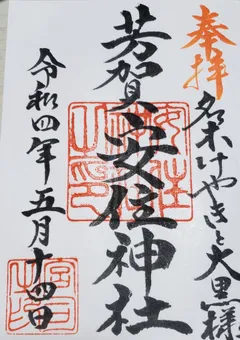 奉拝
名木けやきと大黒様
芳賀安住神社
令和四年五月十四日
安住
之印